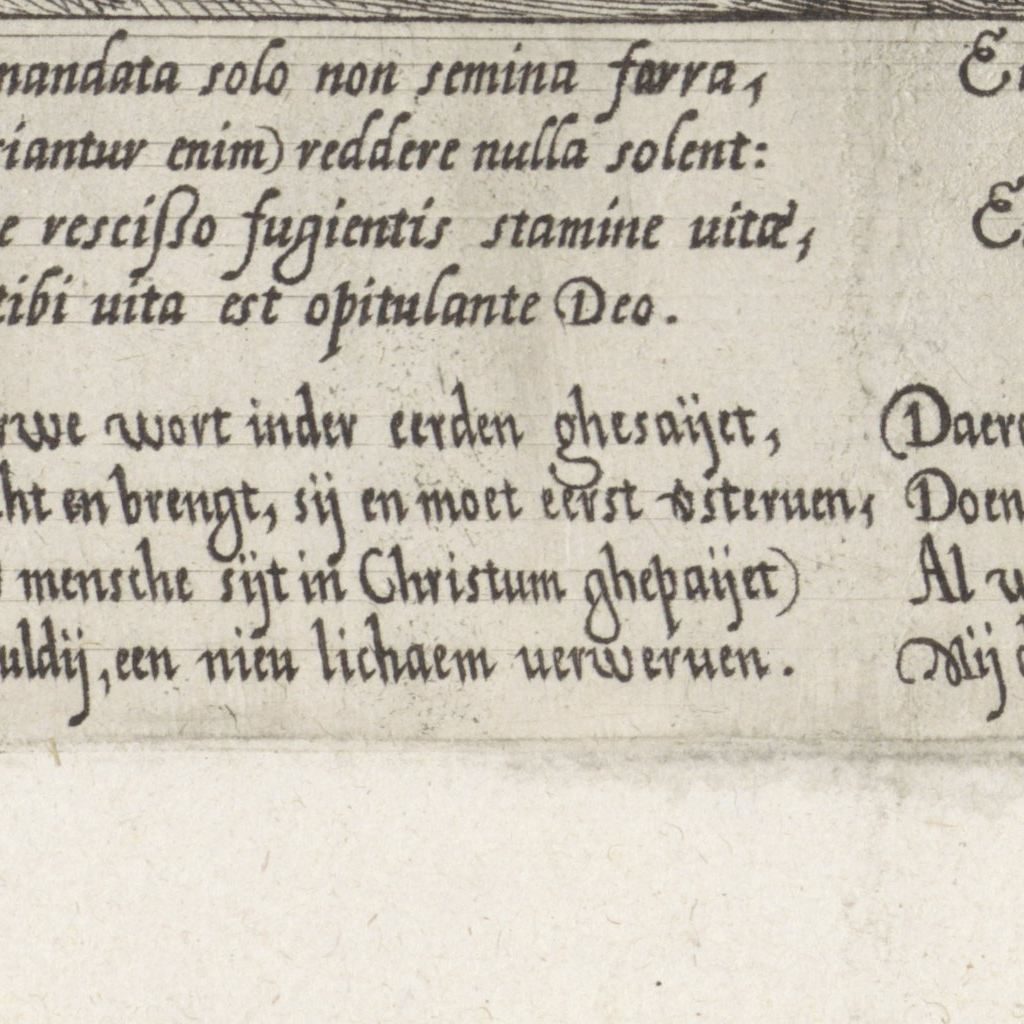 solo non semina farra,
enim) reddere nulla solent:
rescißo fugientis stamine uitæ,
uita est opitulante Deo.
wort inder eerden ghesaijet,
en brengt, sij en moet eerst steruen, Doen
mensche sijt in Christum ghepaijet) Al
een nieu lichaem uerweruen. Mij